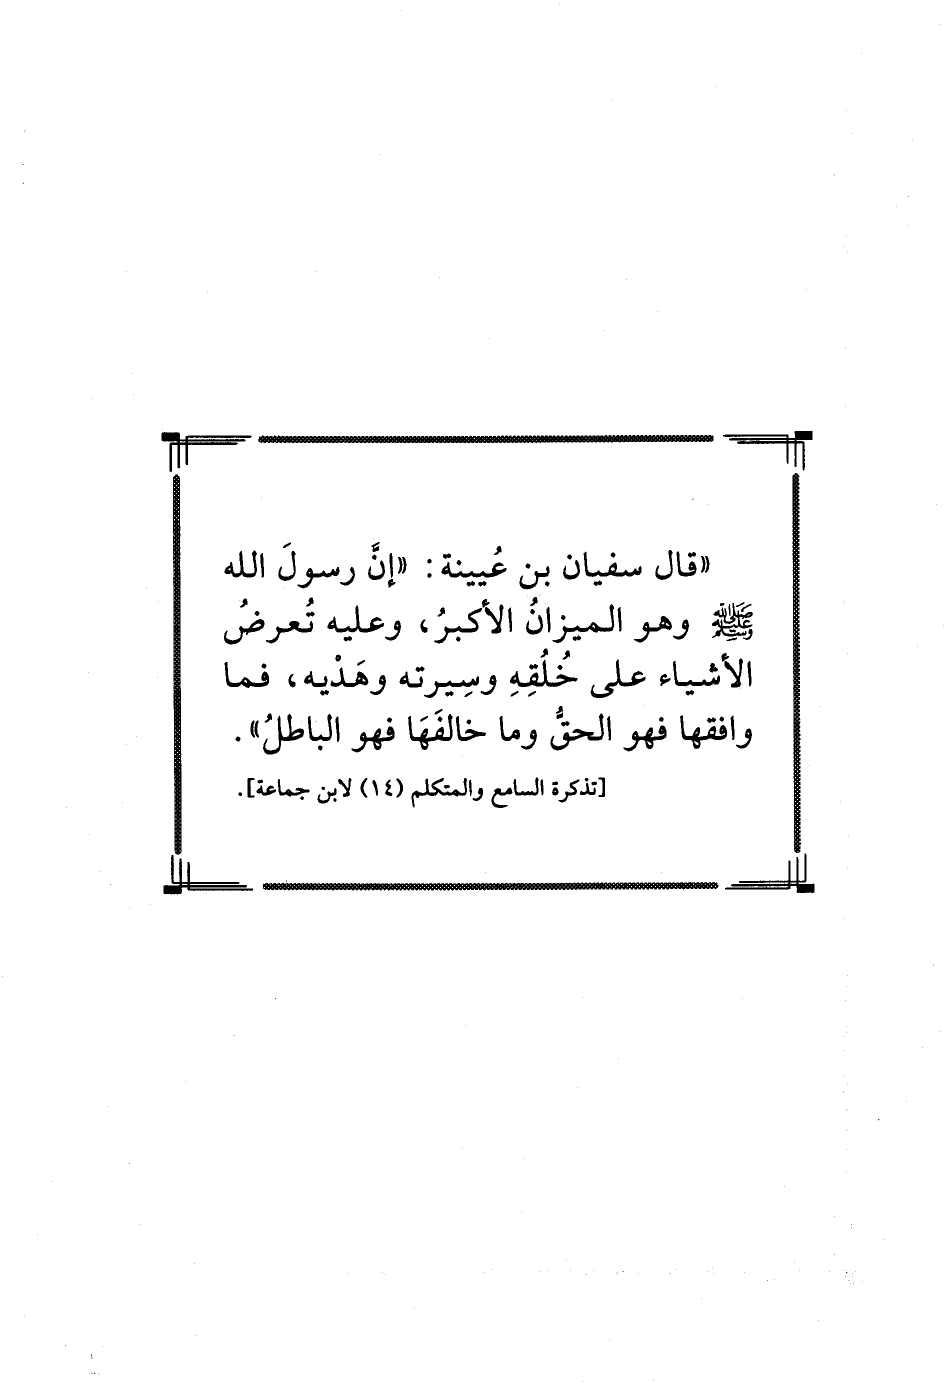 «قال سفيان بن عُيينة: «إنَّ رسولَ الله
ﷺ وهو الميزانُ الأكبرُ، وعليه تُعرضُ
الأشياء على خُلُقِهِ وسِيرته وهَدْيه، فما
وافقها فهو الحقُّ وما خالفَهَا فهو الباطلُ».
[تذكرة السامع والمتكلم (١٤) لابن جماعة].